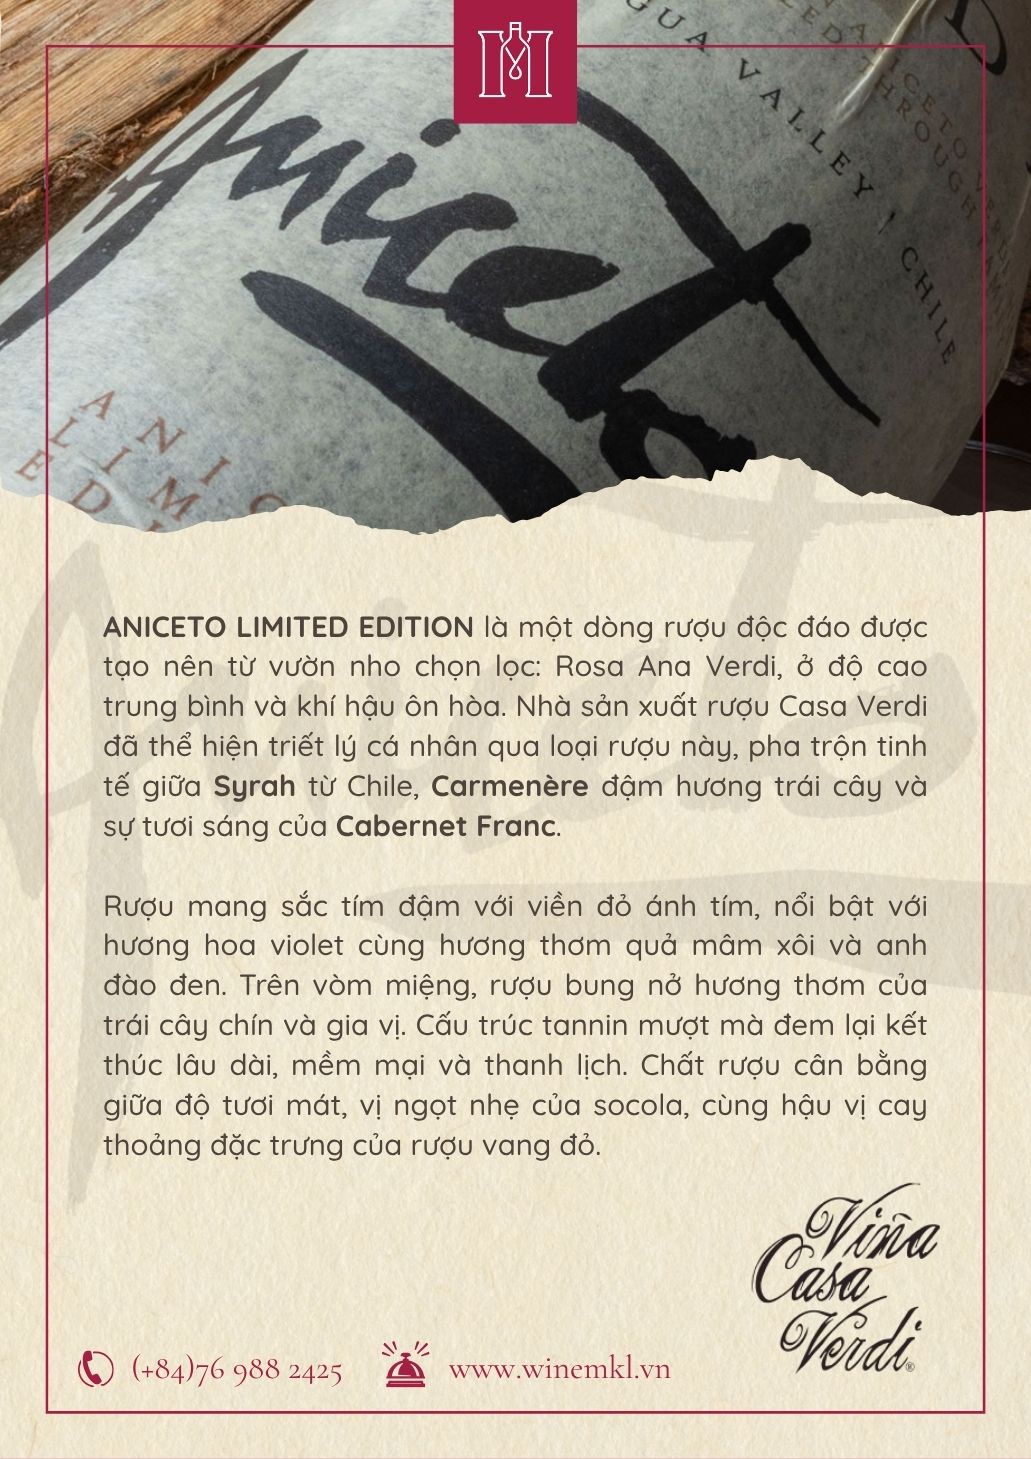 Aniceto
GUA VALLEY | CHILE
ANIC
LIM
EDI
ANICETO LIMITED EDITION là một dòng rượu độc đáo được
tạo nên từ vườn nho chọn lọc: Rosa Ana Verdi, ở độ cao
trung bình và khí hậu ôn hòa. Nhà sản xuất rượu Casa Verdi
đã thể hiện triết lý cá nhân qua loại rượu này, pha trộn tinh
tế giữa Syrah từ Chile, Carmenère đậm hương trái cây và
sự tươi sáng của Cabernet Franc.
Rượu mang sắc tím đậm với viền đỏ ánh tím, nổi bật với
hương hoa violet cùng hương thơm quả mâm xôi và anh
đào đen. Trên vòm miệng, rượu bung nở hương thơm của
trái cây chín và gia vị. Cấu trúc tannin mượt mà đem lại kết
thúc lâu dài, mềm mại và thanh lịch. Chất rượu cân bằng
giữa độ tươi mát, vị ngọt nhẹ của socola, cùng hậu vị cay
thoảng đặc trưng của rượu vang đỏ.
Viña
Casa
Verdi®
(+84)76 988 2425
www.winemkl.vn